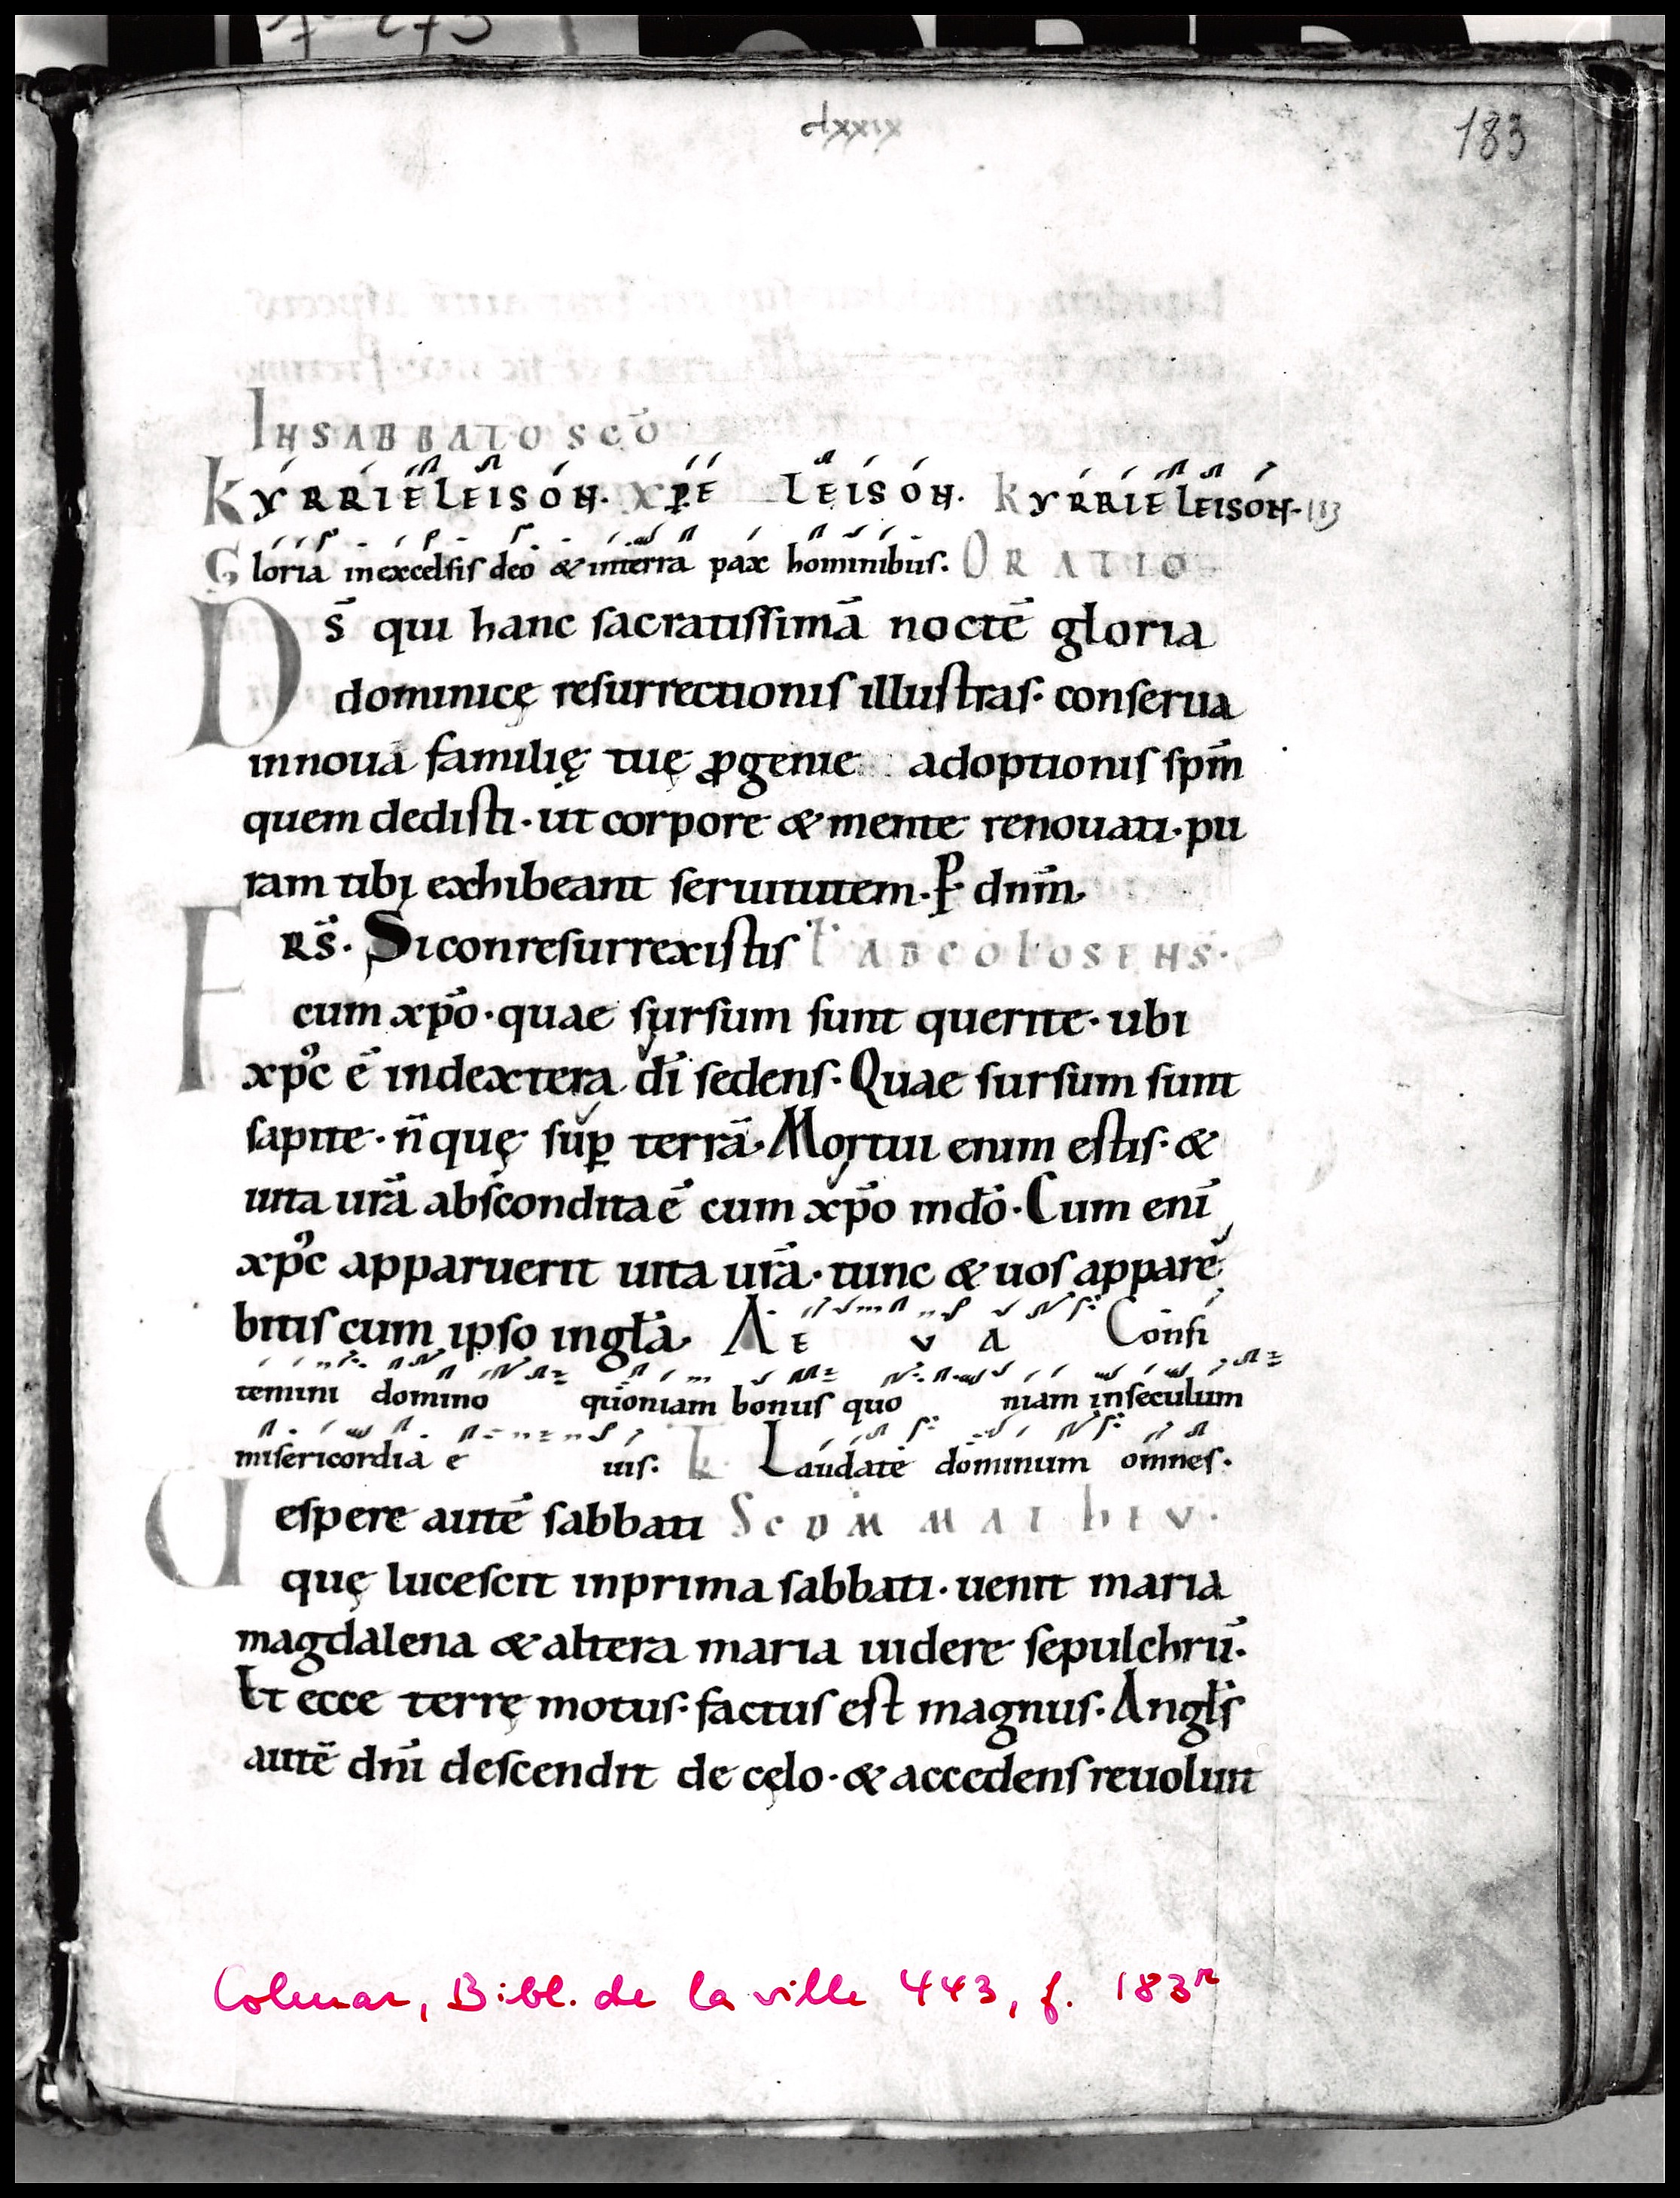 clxxix
183
IN SABBATO SCŌ
KYRRIELEISON. XPE LEISON. KYRRIELEISON. iij
Gloria in excelsis deo & in terra pax hominibus. ORATIO
Ds̄ qui hanc sacratissimā noctē gloria
dominicę resurrectionis illustras. conserua
in noua familię tuę ꝓgenie adoptionis sp̄m
quem dedisti. ut corpore & mente renouati. pu
ram tibi exhibeant seruitutem. P dn̄m
FRS̄. Si conresurrexistis L AD COLOSENS.
cum xp̄o. quae sursum sunt querite. ubi
xp̄c ē in dextera dī sedens. Quae sursum sunt
sapite. n̄ quę sup̱ terrā. Mortui enim estis. &
uita ur̄a abscondita ē cum xp̄o in dō. Cum enī
xp̄c apparuerit uita ur̄a. tunc & uos appare
bitis cum ipso in gl̄a. AEVA Confi
temini domino quoniam bonus quoniam in seculum
misericordia eius. Laudate dominum omnes.
Uespere autē sabbati SCDM MATHEV.
quę lucescit in prima sabbati. uenit maria
magdalena & altera maria uidere sepulchrū.
Et ecce terrę motus. factus est magnus. Angl̄s
autē dn̄i descendit de cęlo. & accedens reuoluit
Colmar, Bibl. de la ville 443, f. 183r